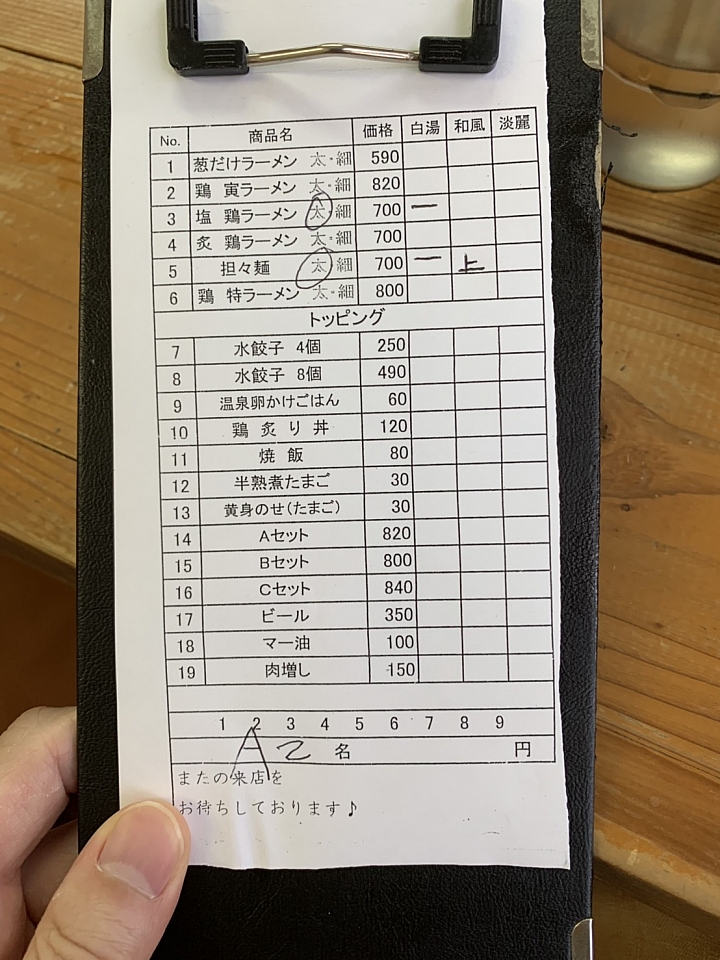 No. 商品名 価格 白湯 和風 淡麗
1 葱だけラーメン 太・細 590
2 鶏 寅ラーメン 太・細 820
3 塩 鶏ラーメン 太・細 700 一
4 炙 鶏ラーメン 太・細 700
5 担々麺 太・細 700 一 上
6 鶏 特ラーメン 太・細 800
トッピング
7 水餃子 4個 250
8 水餃子 8個 490
9 温泉卵かけごはん 60
10 鶏 炙 り 丼 120
11 焼 飯 80
12 半熟煮たまご 30
13 黄身のせ(たまご) 30
14 Aセット 820
15 Bセット 800
16 Cセット 840
17 ビール 350
18 マー油 100
19 肉増し 150
1 2 3 4 5 6 7 8 9
A 2 名 円
またの来店を
お待ちしております♪